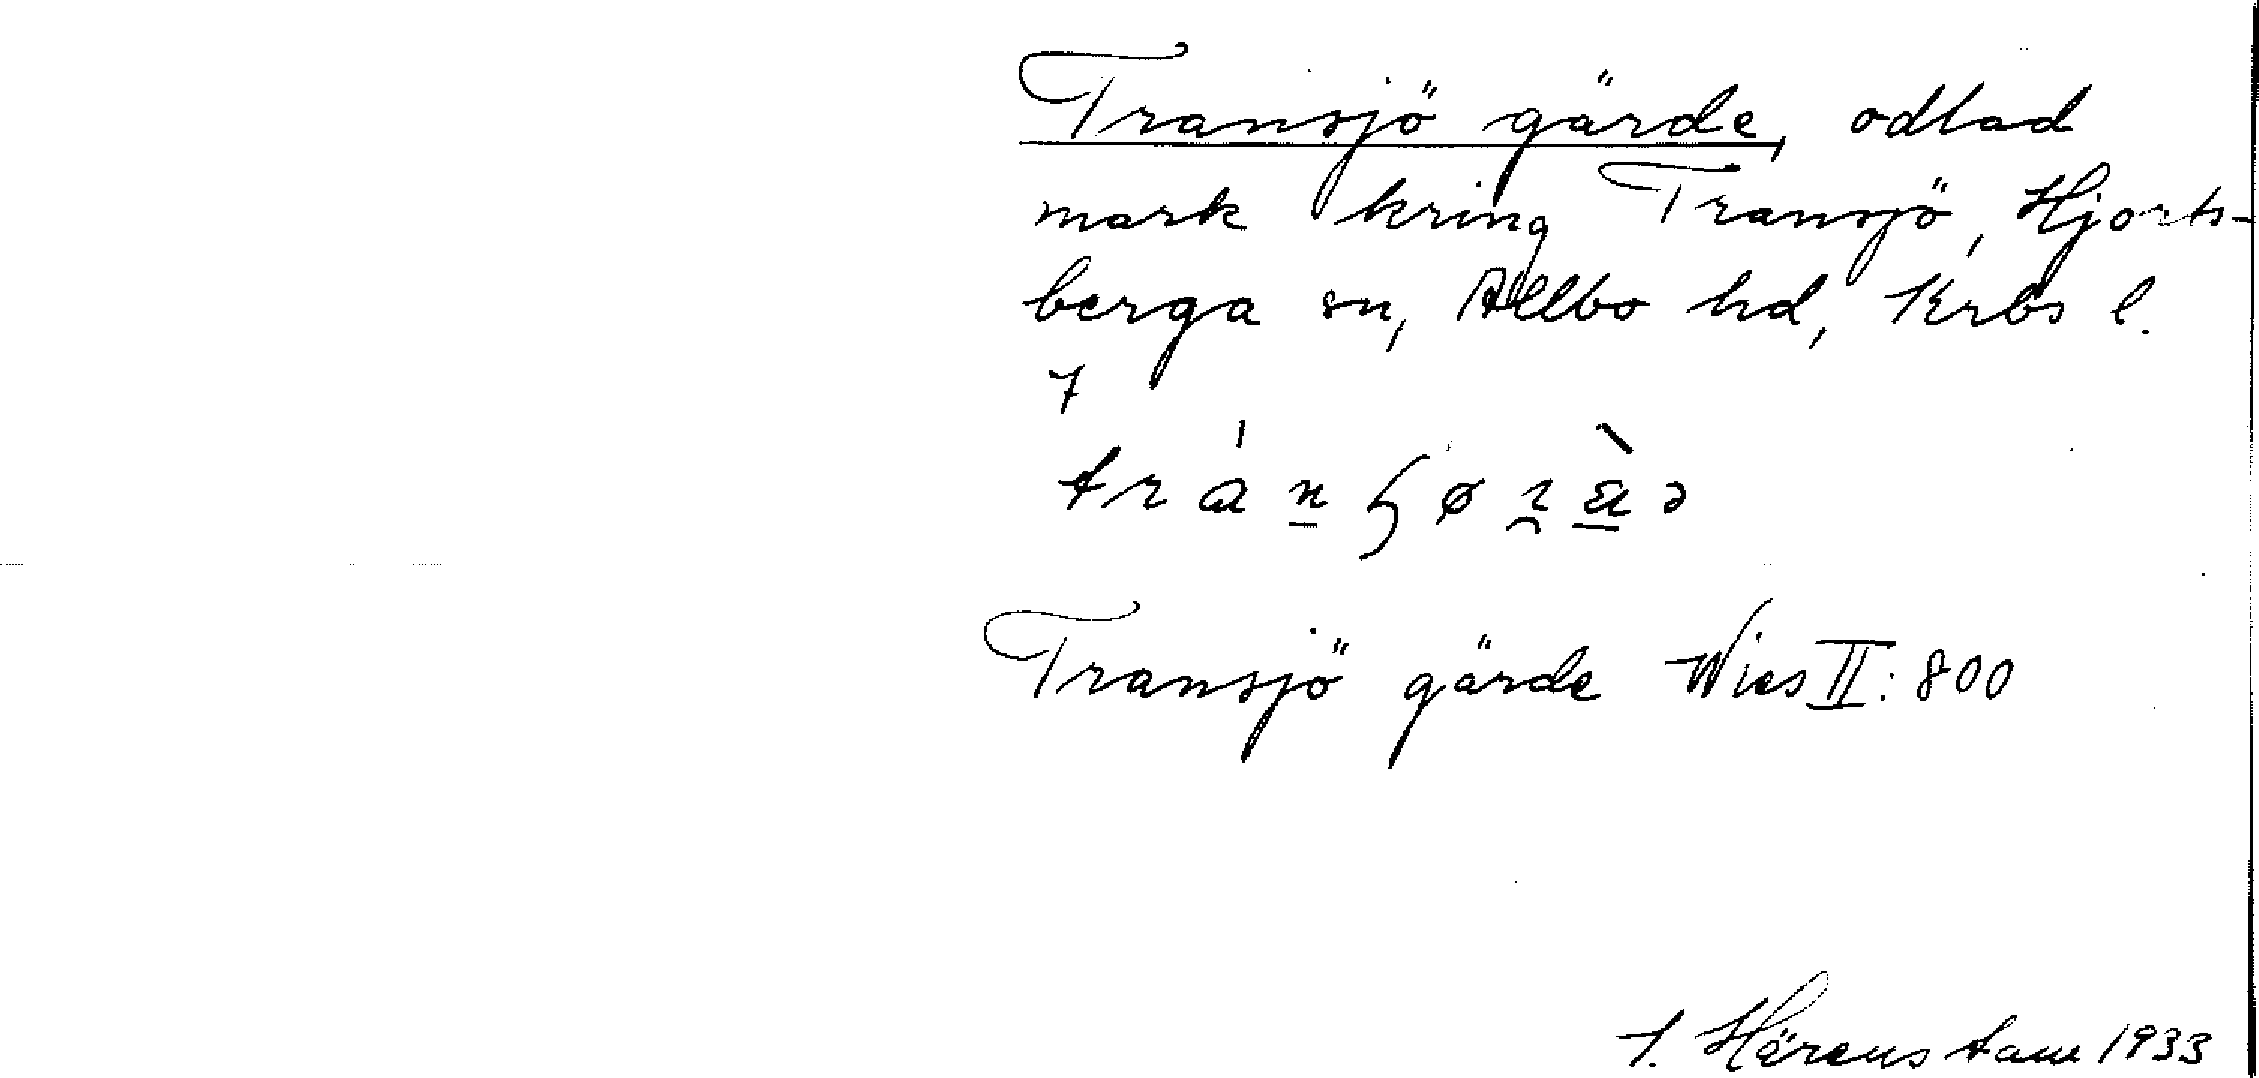 Transjö gärde, odlad
mark kring Transjö, Hjorts-
berga sn, Allbo hd, Krbs l.
7
Transjö gärde Wies II: 800
J. Härenstam 1933